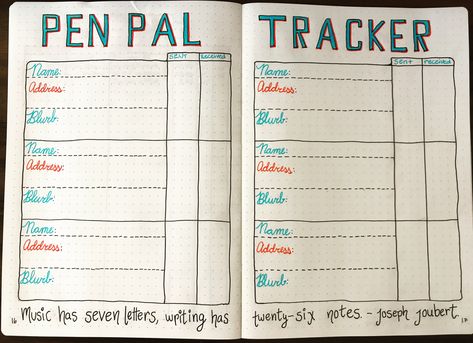 PEN PAL TRACKER
SENT received
Name:
Address:
Blurb:
Name:
Address:
Blurb:
Name:
Address:
Blurb:
Sent received
Name:
Address:
Blurb:
Name:
Address:
Blurb:
Name:
Address:
Blurb:
16 Music has seven letters, writing has twenty-six notes. - joseph joubert. 17